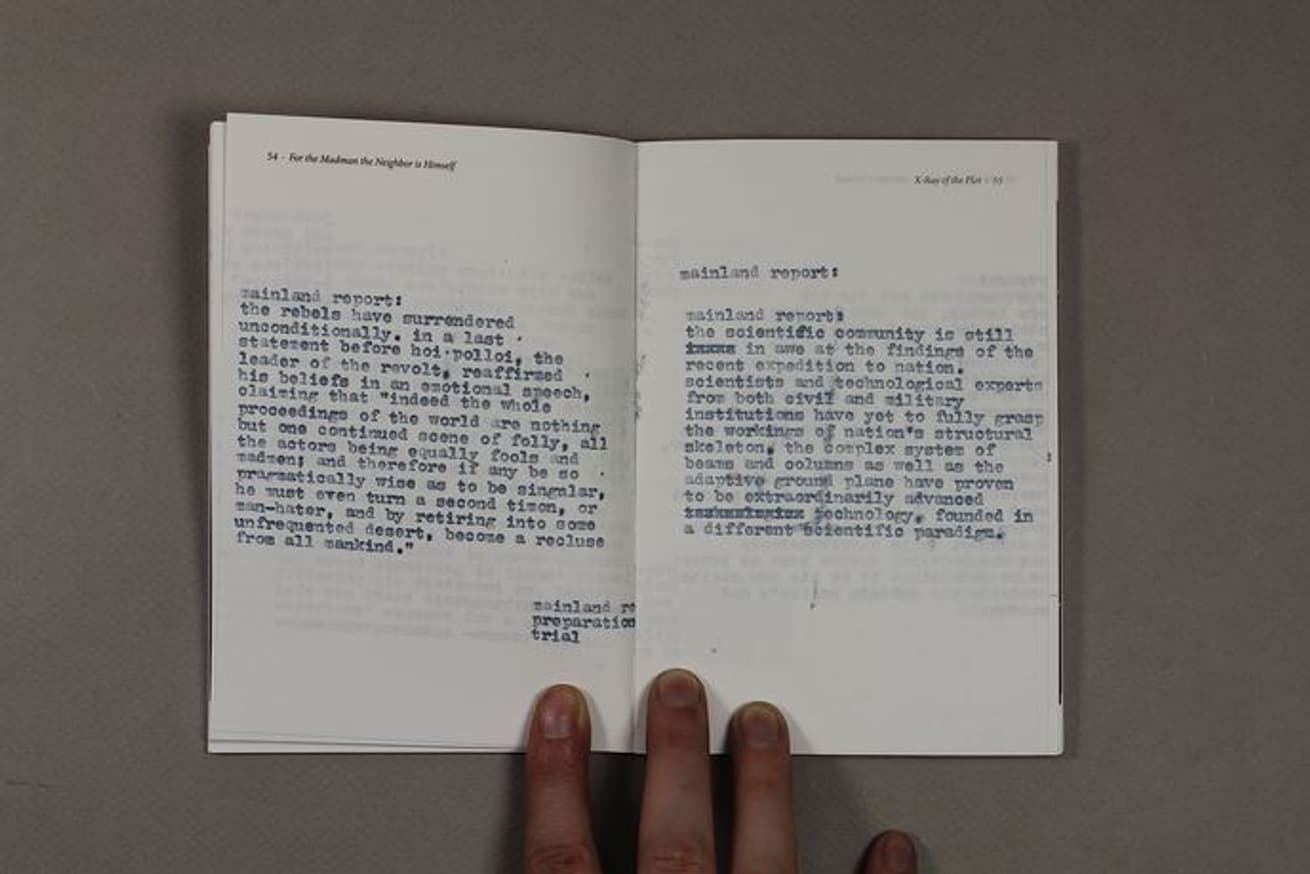 54 - For the Madman the Neighbor is Himself
mainland report:
the rebels have surrendered
unconditionally. in a last
statement before hoi-polloi, the
leader of the revolt, reaffirmed
his beliefs in an emotional speech,
claiming that "indeed the whole
proceedings of the world are nothing
but one continued scene of folly, all
the actors being equally fools and
madmen; and therefore if any be so
pragmatically wise as to be singular,
he must even turn a second timon, or
man-hater, and by retiring into some
unfrequented desert, become a recluse
from all mankind."
mainland re
preparation
trial
X-Ray of the Plot - 55
mainland report:
mainland report:
the scientific community is still
in awe at the findings of the
recent expedition to nation.
scientists and technological experts
from both civil and military
institutions have yet to fully grasp
the workings of nation's structural
skeleton, the complex system of
beams and columns as well as the
adaptive ground plane have proven
to be extraordinarily advanced
technology, founded in
a different scientific paradigm.